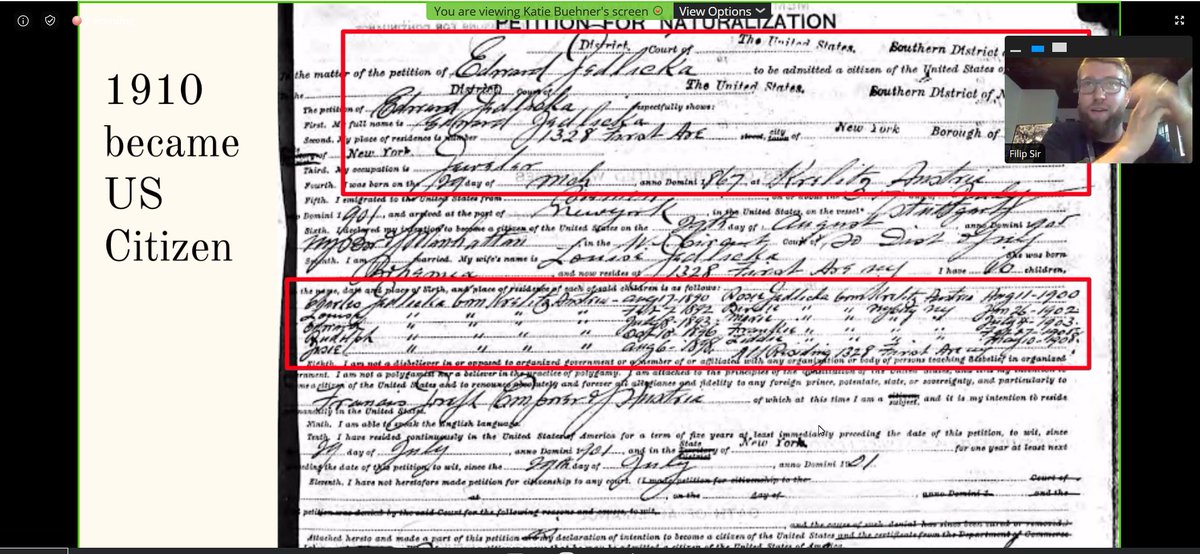 You are viewing Katie Buehner's screen
View Options
1910
became
US
Citizen
Filip Sir
PETITION FOR NATURALIZATION
District Court of The United States, Southern District
the matter of the petition of Edward Jedlicka to be admitted a citizen of the United States
District Court The United States, Southern District of
The petition of Edward Jedlicka respectfully shows:
First. My full name is Edward Jedlicka
Second. My place of residence is number 1328 First Ave street, city of New York Borough of
of New York.
Third. My occupation is Jeweler
Fourth. I was born on the 29 day of mch, anno Domini 1867, at Kralitz Austria
Fifth. I emigrated to the United States from
Domini 1901, and arrived at the port of New York, in the United States, on the vessel Stuttgart
Sixth. I declared my intention to become a citizen of the United States on the 29th day of August anno Domini 1905
Manhattan in the Court of So Dist of ny
Seventh. I am married. My wife's name is Louise Jedlicka She was born
Bohemia and now resides at 1328 First Ave ny I have 10 children,
the name, date and place of birth, and place of residence of each of said children is as follows:
Charles Jedlicka born Kralitz Austria - aug 17-1890 Rosie Jedlicka born Kralitz Austria Aug 11-1900
Louise " " " " Feb 2-1892 Birdie " " ny city ny Jan 26-1902
" " " " July 8-1893 Marie " " " 1903
Rudolph " " " " 1896 Frankie " " " Feb 27
Josie " " " " aug 6-1898 Liddie " " " May 10-1908
All Residing 1328 First Ave ny
Eighth. I am not a disbeliever in or opposed to organized government or a member of or affiliated with any organization or body of persons teaching disbelief in organized
ernment. I am not a polygamist nor a believer in the practice of polygamy. I am attached to the principles of the Constitution of the United States, and it is my intention to
me a citizen of the United States and to renounce absolutely and forever all allegiance and fidelity to any foreign prince, potentate, state, or sovereignty, and particularly to
Francis Joseph Emperor of Austria of which at this time I am a citizen subject, and it is my intention to reside
manently in the United States.
Ninth. I am able to speak the English language.
Tenth. I have resided continuously in the United States of America for a term of five years at least immediately preceding the date of this petition, to wit, since
29 day of July, anno Domini 1901, and in the State of New York, for one year at least next
eding the date of this petition, to wit, since the 29th day of July, anno Domini 1901.
Eleventh. I have not heretofore made petition for citizenship to any court. (I made petition for citizenship to the Court of
at, on the day of anno Domini 1 and the
petition was denied by the said Court for the following reasons and causes, to wit,
and the cause of such denial has since been cured or removed.)
Attached hereto and made a part of this petition are my declaration of intention to become a citizen of the United States and the certificate from the Department of Commerce